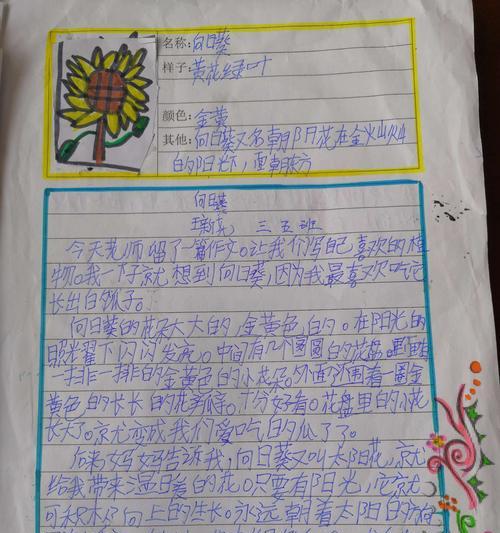 名称: 向日葵
样子: 黄花绿叶
颜色: 金黄
其他: 向日葵又名朝阳花在金火火
的阳光下, 面朝东方
向日葵
三五班
今天老师留了一篇作文。让我们写自己喜欢的植
物。我一下子就想到向日葵,因为我最喜欢吃它
长出的瓜子。
向日葵的花朵大大的,金黄色的。在阳光的
照耀下闪闪发亮。中间有几个圆圆的花盘。里面有
一排一排的金黄色的小花朵。外面还围着一圈金
黄色的长长的花瓣。十分好看。花盘里的小花
长大了。就变成我们爱吃的瓜子了。
后来妈妈告诉我,向日葵又叫太阳花,就
给我带来温暖的花。只要有阳光,它就
可积极向上的生长。永远朝着太阳的方向